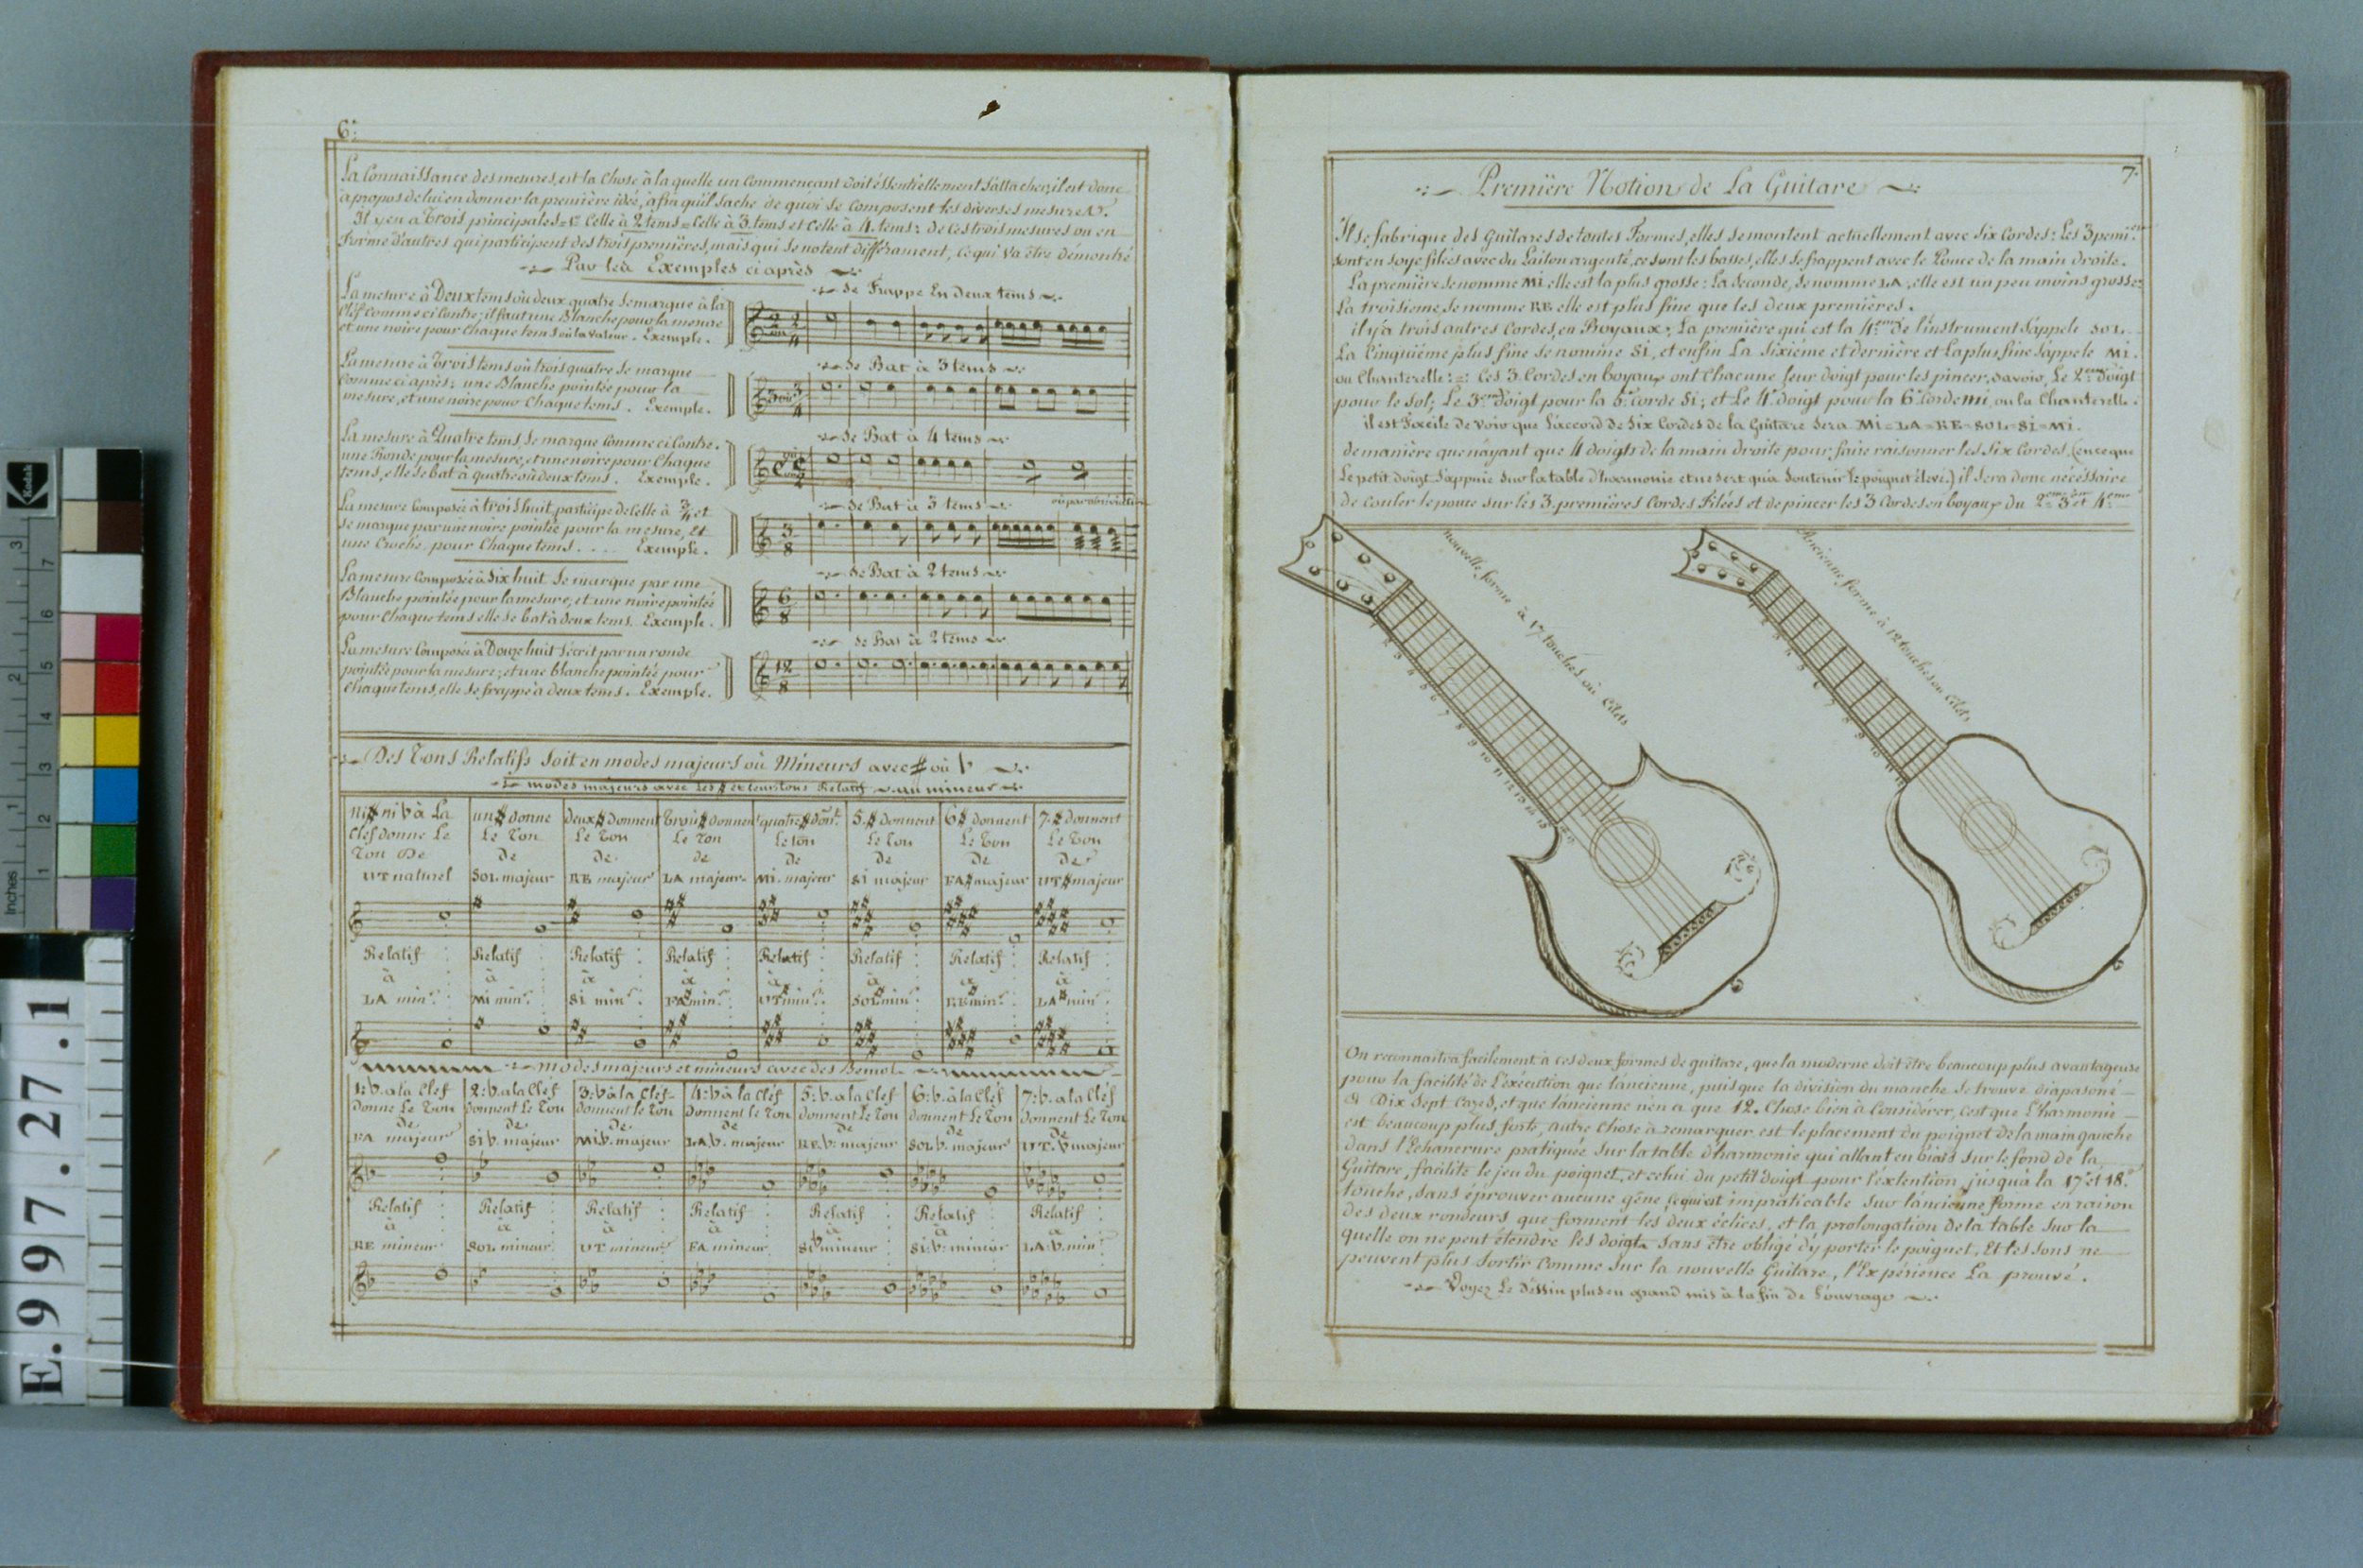 6.
La Connaissance des mesures, est la Chose à la quelle un Commençant doit éssentiellement s'attacher, il est donc
àpropos de lui en donner la première idée, àfin qu'il sache de quoi se Composent les diverses mesures.
Il y en a Trois principales = Celle à 2 tems = Celle à 3 tems et Celle à 4. tems: de Ces trois mesures on en
Forme d'autres qui participent des trois premières, mais qui se notent différament, Ce qui va être démontré
Par les Exemples ci après
La mesure à Deux tems où deux quatre se marque à la
Clef Comme ci Contre; il faut une Blanche pour la mesure
et une noire pour Chaque tems où la valeur. Exemple.
Se Frappe En deux tems
La mesure à Trois tems où trois quatre Se marque
Comme ci après: une Blanche pointée pour la
mesure, et une noire pour Chaque tems. Exemple.
Se Bat à 3 tems
La mesure à Quatre tems, Se marque Comme ci Contre.
une Ronde pour la mesure, et une noire pour Chaque
tems, elle se bat à quatre où deux tems. Exemple.
Se Bat à 4 tems
La mesure Composée à trois huit, participe de Celle à 3/4 et
se marque par une noire pointée pour la mesure, et
une Croche pour Chaque tems. . . . . Exemple.
Se Bat à 3 tems
où par abréviation
La mesure Composée à Six huit Se marque par une
Blanche pointée pour la mesure; et une noire pointée
pour Chaque tems elle se bat à deux tems. Exemple.
Se Bat à 2 tems
La mesure Composée à Douze huit S'écrit par un ronde
pointée pour la mesure; et une blanche pointée pour
Chaque tems, elle se frappe à deux tems. Exemple.
Se Bat à 2 tems
Des Tons Relatifs Soit en modes majeurs où Mineurs avec # où b
modes majeurs avec des # et leur tons Relatif au mineur
ni # ni b à La Clef donne Le Ton De UT naturel
un # donne Le Ton de SOL majeur
deux # donnent Le Ton de RE majeur
Trois # donnent Le Ton de LA majeur
quatre # dont Le ton de MI majeur
5. # donnent Le Ton de SI majeur
6 # donnent Le Ton de FA # majeur
7. # donnent Le Ton de UT # majeur
Relatif à LA min.r
Relatif à MI min.r
Relatif à SI min.r
Relatif à FA # min.r
Relatif à UT # min.r
Relatif à SOL # min.r
Relatif à RE # min.r
Relatif à LA # min.r
modes majeurs et mineurs avec des Bemol
1: b. a la Clef donne Le Ton de FA majeur
2: b. a la Clef donnent Le Ton de SI b. majeur
3: b à la Clef donnent le Ton de MI b. majeur
4: b à la Clef donnent Le Ton de LA b. majeur
5: b. a la Clef donnent Le Ton de RE. b: majeur
6: b. à la Clef donnent Le Ton de SOL b. majeur
7: b. a la Clef donnent Le Ton de UT. b majeur
Relatif à RE mineur
Relatif à SOL mineur
Relatif à UT mineur
Relatif à FA mineur
Relatif à SI b mineur
Relatif à MI b: mineur
Relatif à LA b. min.r
7.
Première Notion de La Guitare
Il se fabrique des Guitares de toutes Formes, elles se montent actuellement avec Six Cordes: Les 3 premi.ères
sont en soye filées avec du Laiton argenté, ce sont les basses, elles se frappent avec le Pouce de la main droite.
La première se nomme MI, elle est la plus grosse: La Seconde, Se nomme LA, elle est un peu moins grosse:
La troisième, Se nomme RE elle est plus fine que les deux premières.
il y'a trois autres Cordes, en Boyaux, La première qui est la 4.eme de l'instrument S'appele SOL.
La Cinquième plus fine Se nomme SI, et enfin La Sixième et dernière et La plus fine S'appele MI.
ou Chanterelle: = : Ces 3 Cordes en boyaux ont Chacune leur doigt pour les pincer, Savoir, Le 2.eme doigt
pour le Sol; Le 3.eme doigt pour la 5.e Corde Si; et Le 4.e doigt pour la 6.e Corde mi, ou la Chanterelle.
il est Facile de voir que L'accord de Six Cordes de la Guitare Sera MI = LA = RE = SOL = SI = MI.
de manière que n'ayant que 4 doigts de la main droite pour faire raisonner les Six Cordes, (ence que
Le petit doigt S'appuie Sur la table d'harmonie et ne Sert qu'à Soutenir le poignet élevé.) il Sera donc nécéssaire
de Couler le pouce Sur les 3. premières Cordes Filées et de pincer les 3 Cordes en boyaux du 2.eme 3.eme et 4.eme
nouvelle forme à 17 touches où Cilets
Ancienne forme à 12 touches ou Cilets
On reconnaitra facilement à ces deux formes de guitare, que la moderne doit être beaucoup plus avantageuse
pour la facilité de L'éxécution que l'ancienne, puisque la division du manche Se trouve diapasoné
à Dix Sept Cazes, et que l'ancienne n'en a que 12. Chose bien à Considérer, C'est que L'harmonie
est beaucoup plus forte, autre Chose à remarquer est le placement du poignet de la main gauche
dans l'Echancrure pratiquée Sur la table d'harmonie qui allant en biais Sur le fond de la
Guitare, facilite le jeu du poignet, et celui du petit doigt pour l'éxtention jusqu'à la 17 et 18.e
touche, Sans éprouver aucune gêne, Ce qui est impraticable Sur l'ancienne forme en raison
des deux rondeurs que forment les deux éclices, et la prolongation de la table Sur la
quelle on ne peut étendre les doigts Sans être obligé d'y porter le poignet, Et les Sons ne
peuvent plus Sortir Comme Sur la nouvelle Guitare, l'Expérience La prouvé.
Voyez Le Dessin plus en grand mis à la fin de L'ouvrage
Kodak
Inches
E.997.27.1